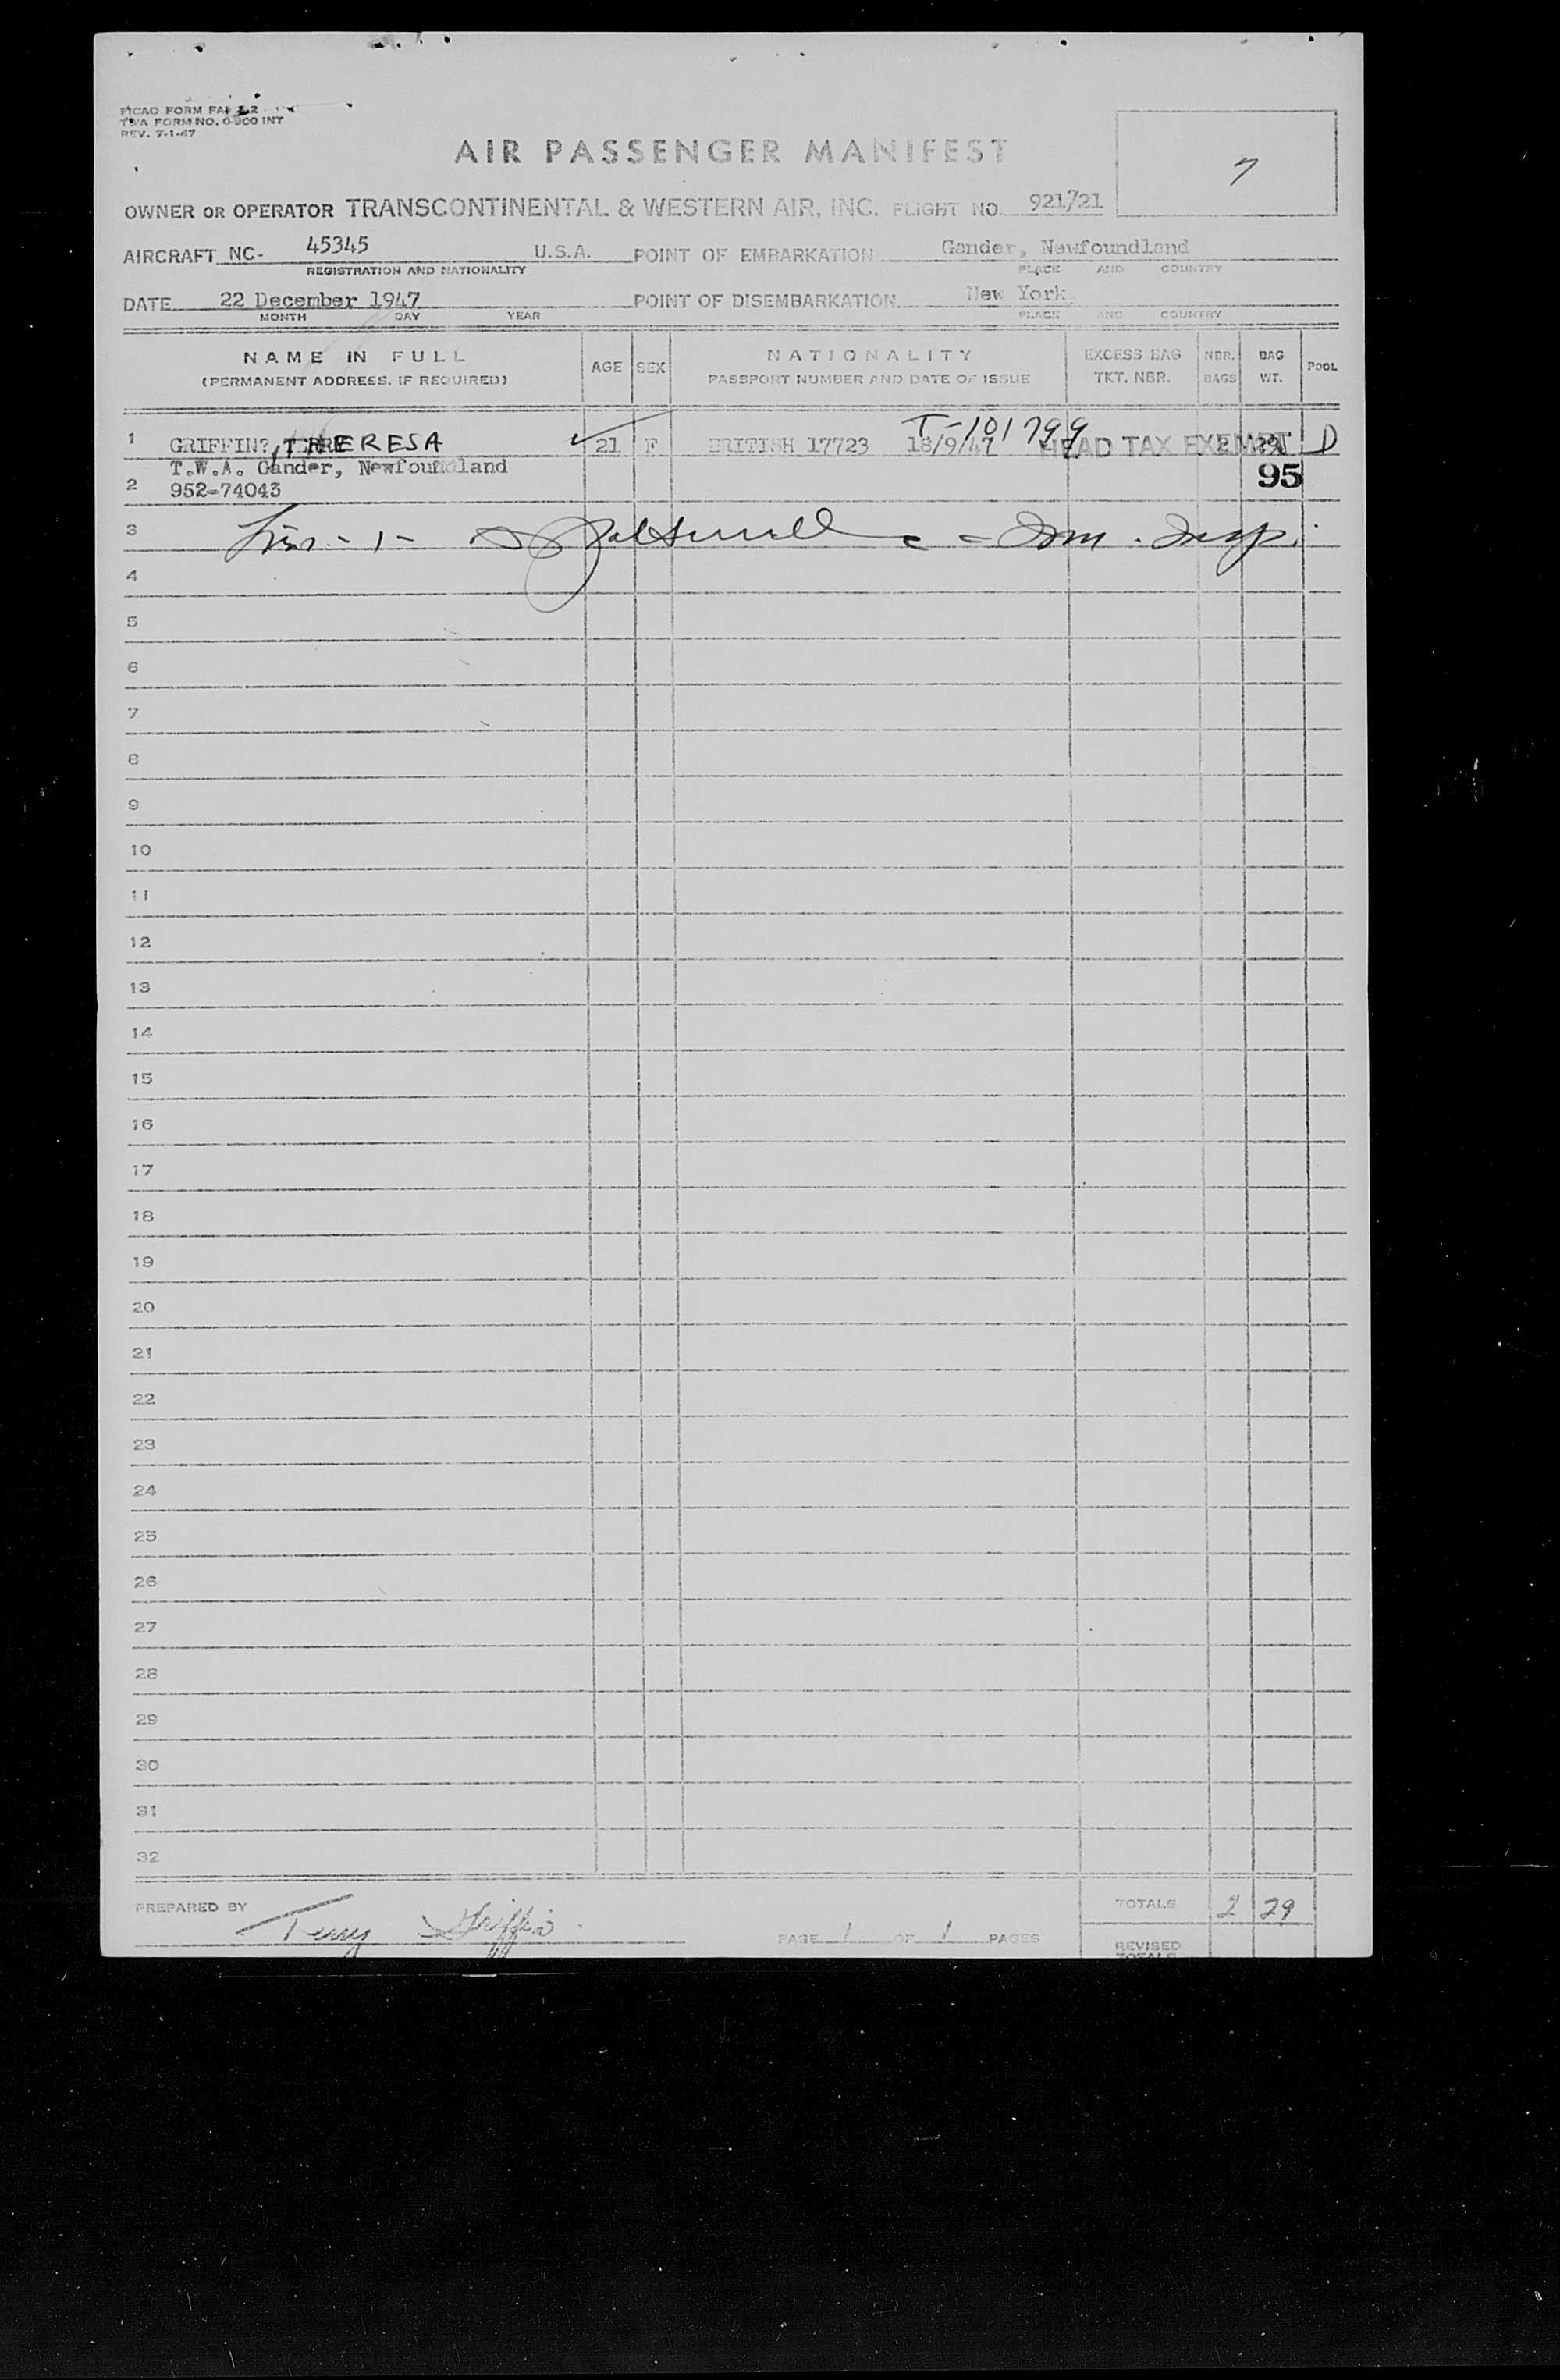 PICAO FORM FAL 2-2
TWA FORM NO. 0-900 INT
REV. 7-1-47
AIR PASSENGER MANIFEST
7
OWNER OR OPERATOR TRANSCONTINENTAL & WESTERN AIR, INC. FLIGHT NO. 921/21
AIRCRAFT NC- 45345 U.S.A. POINT OF EMBARKATION Gander, Newfoundland
REGISTRATION AND NATIONALITY PLACE AND COUNTRY
DATE 22 December 1947 POINT OF DISEMBARKATION New York
MONTH DAY YEAR PLACE AND COUNTRY
NAME IN FULL AGE SEX NATIONALITY EXCESS BAG NBR. BAG POOL
(PERMANENT ADDRESS, IF REQUIRED) PASSPORT NUMBER AND DATE OF ISSUE TKT. NBR. BAGS WT.
T-101799
1 GRIFFIN?, THERESA 21 F BRITISH 17723 18/9/47 HEAD TAX EXEMPT 2 29 D
T.W.A. Gander, Newfoundland
95
2 952-74043
3 - 1 - Imm. Insp.
4
5
6
7
8
9
10
11
12
13
14
15
16
17
18
19
20
21
22
23
24
25
26
27
28
29
30
31
32
PREPARED BY Terry Griffin TOTALS 2 29
PAGE 1 OF 1 PAGES
REVISED
TOTALS